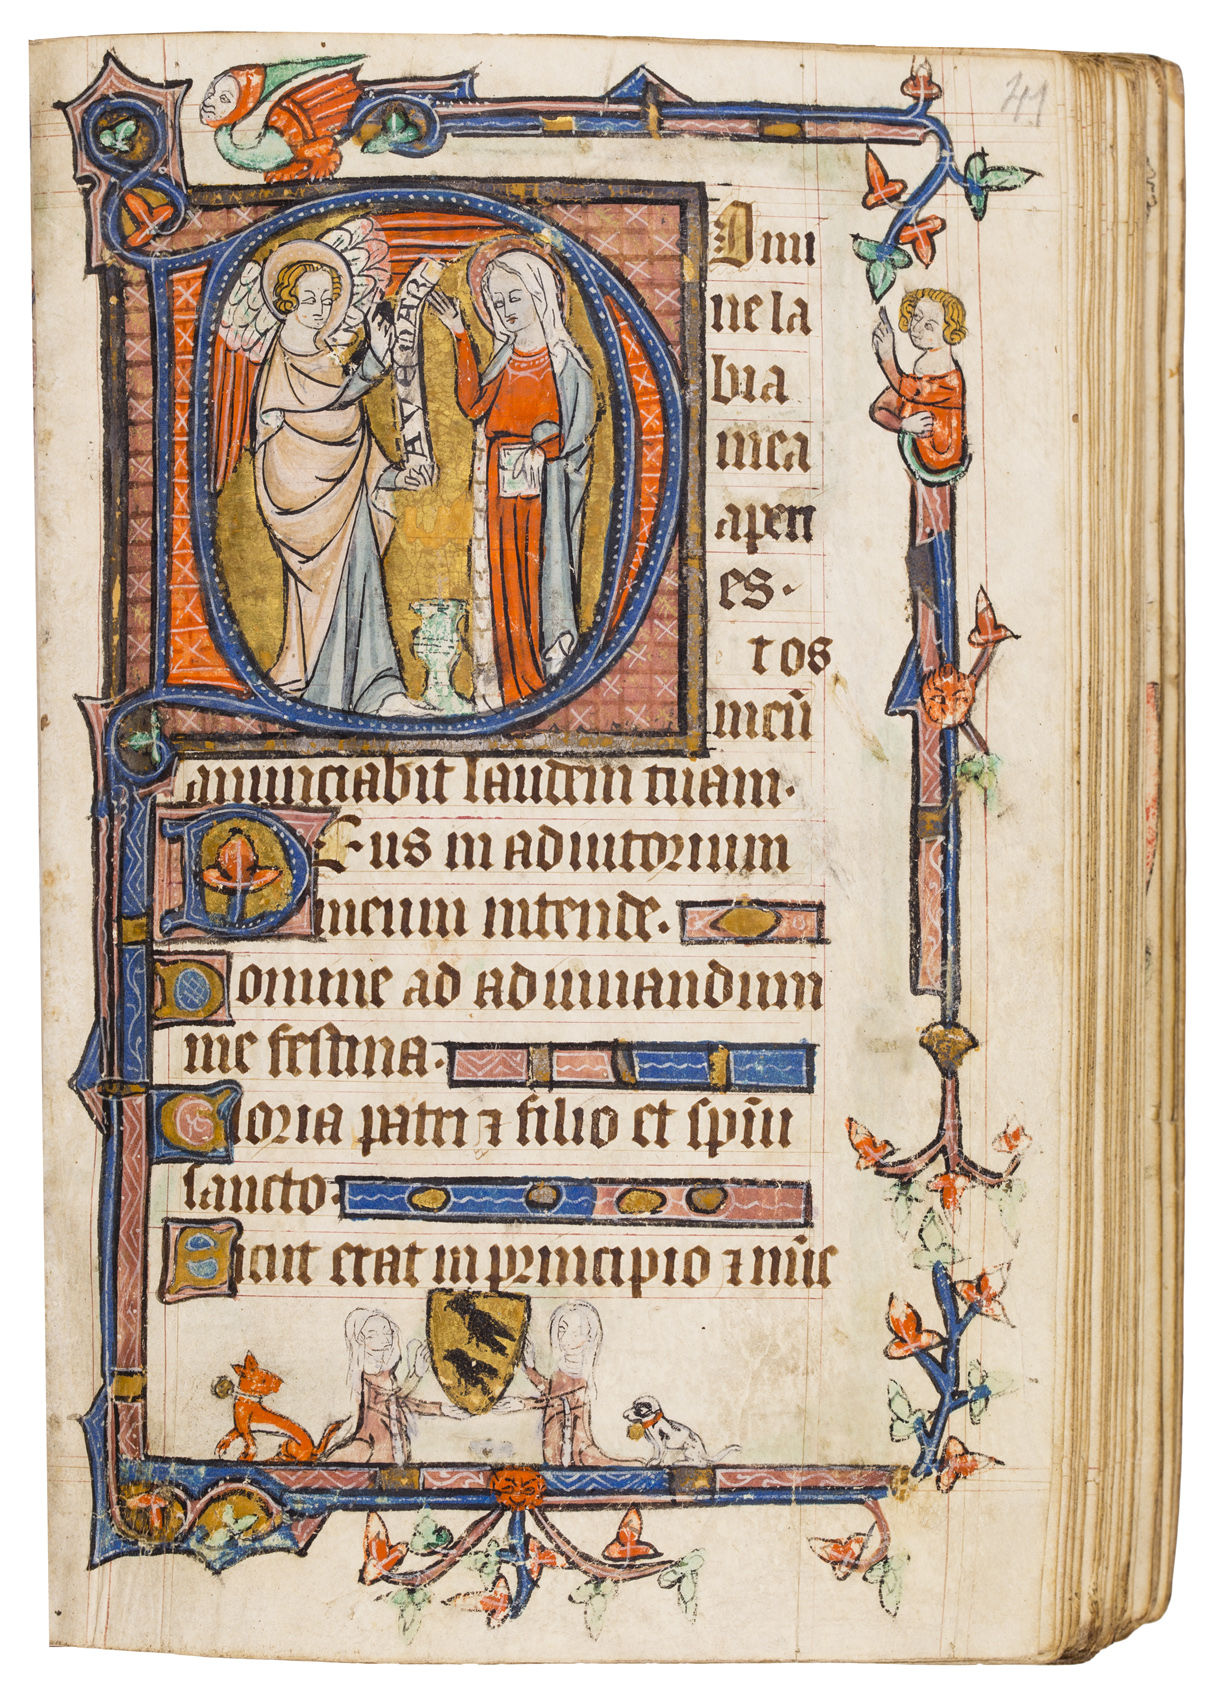 41
AVE MARI
DOmi
ne la
bia
mea
aperi
es·
t os
meū
anunciabit laudem tuam·
DEus in adiutorium
meum intende·
Domine ad adiuuandum
me festina·
Gloria patri ⁊ filio et spūi
sancto·
Sicut erat in principio ⁊ nūc